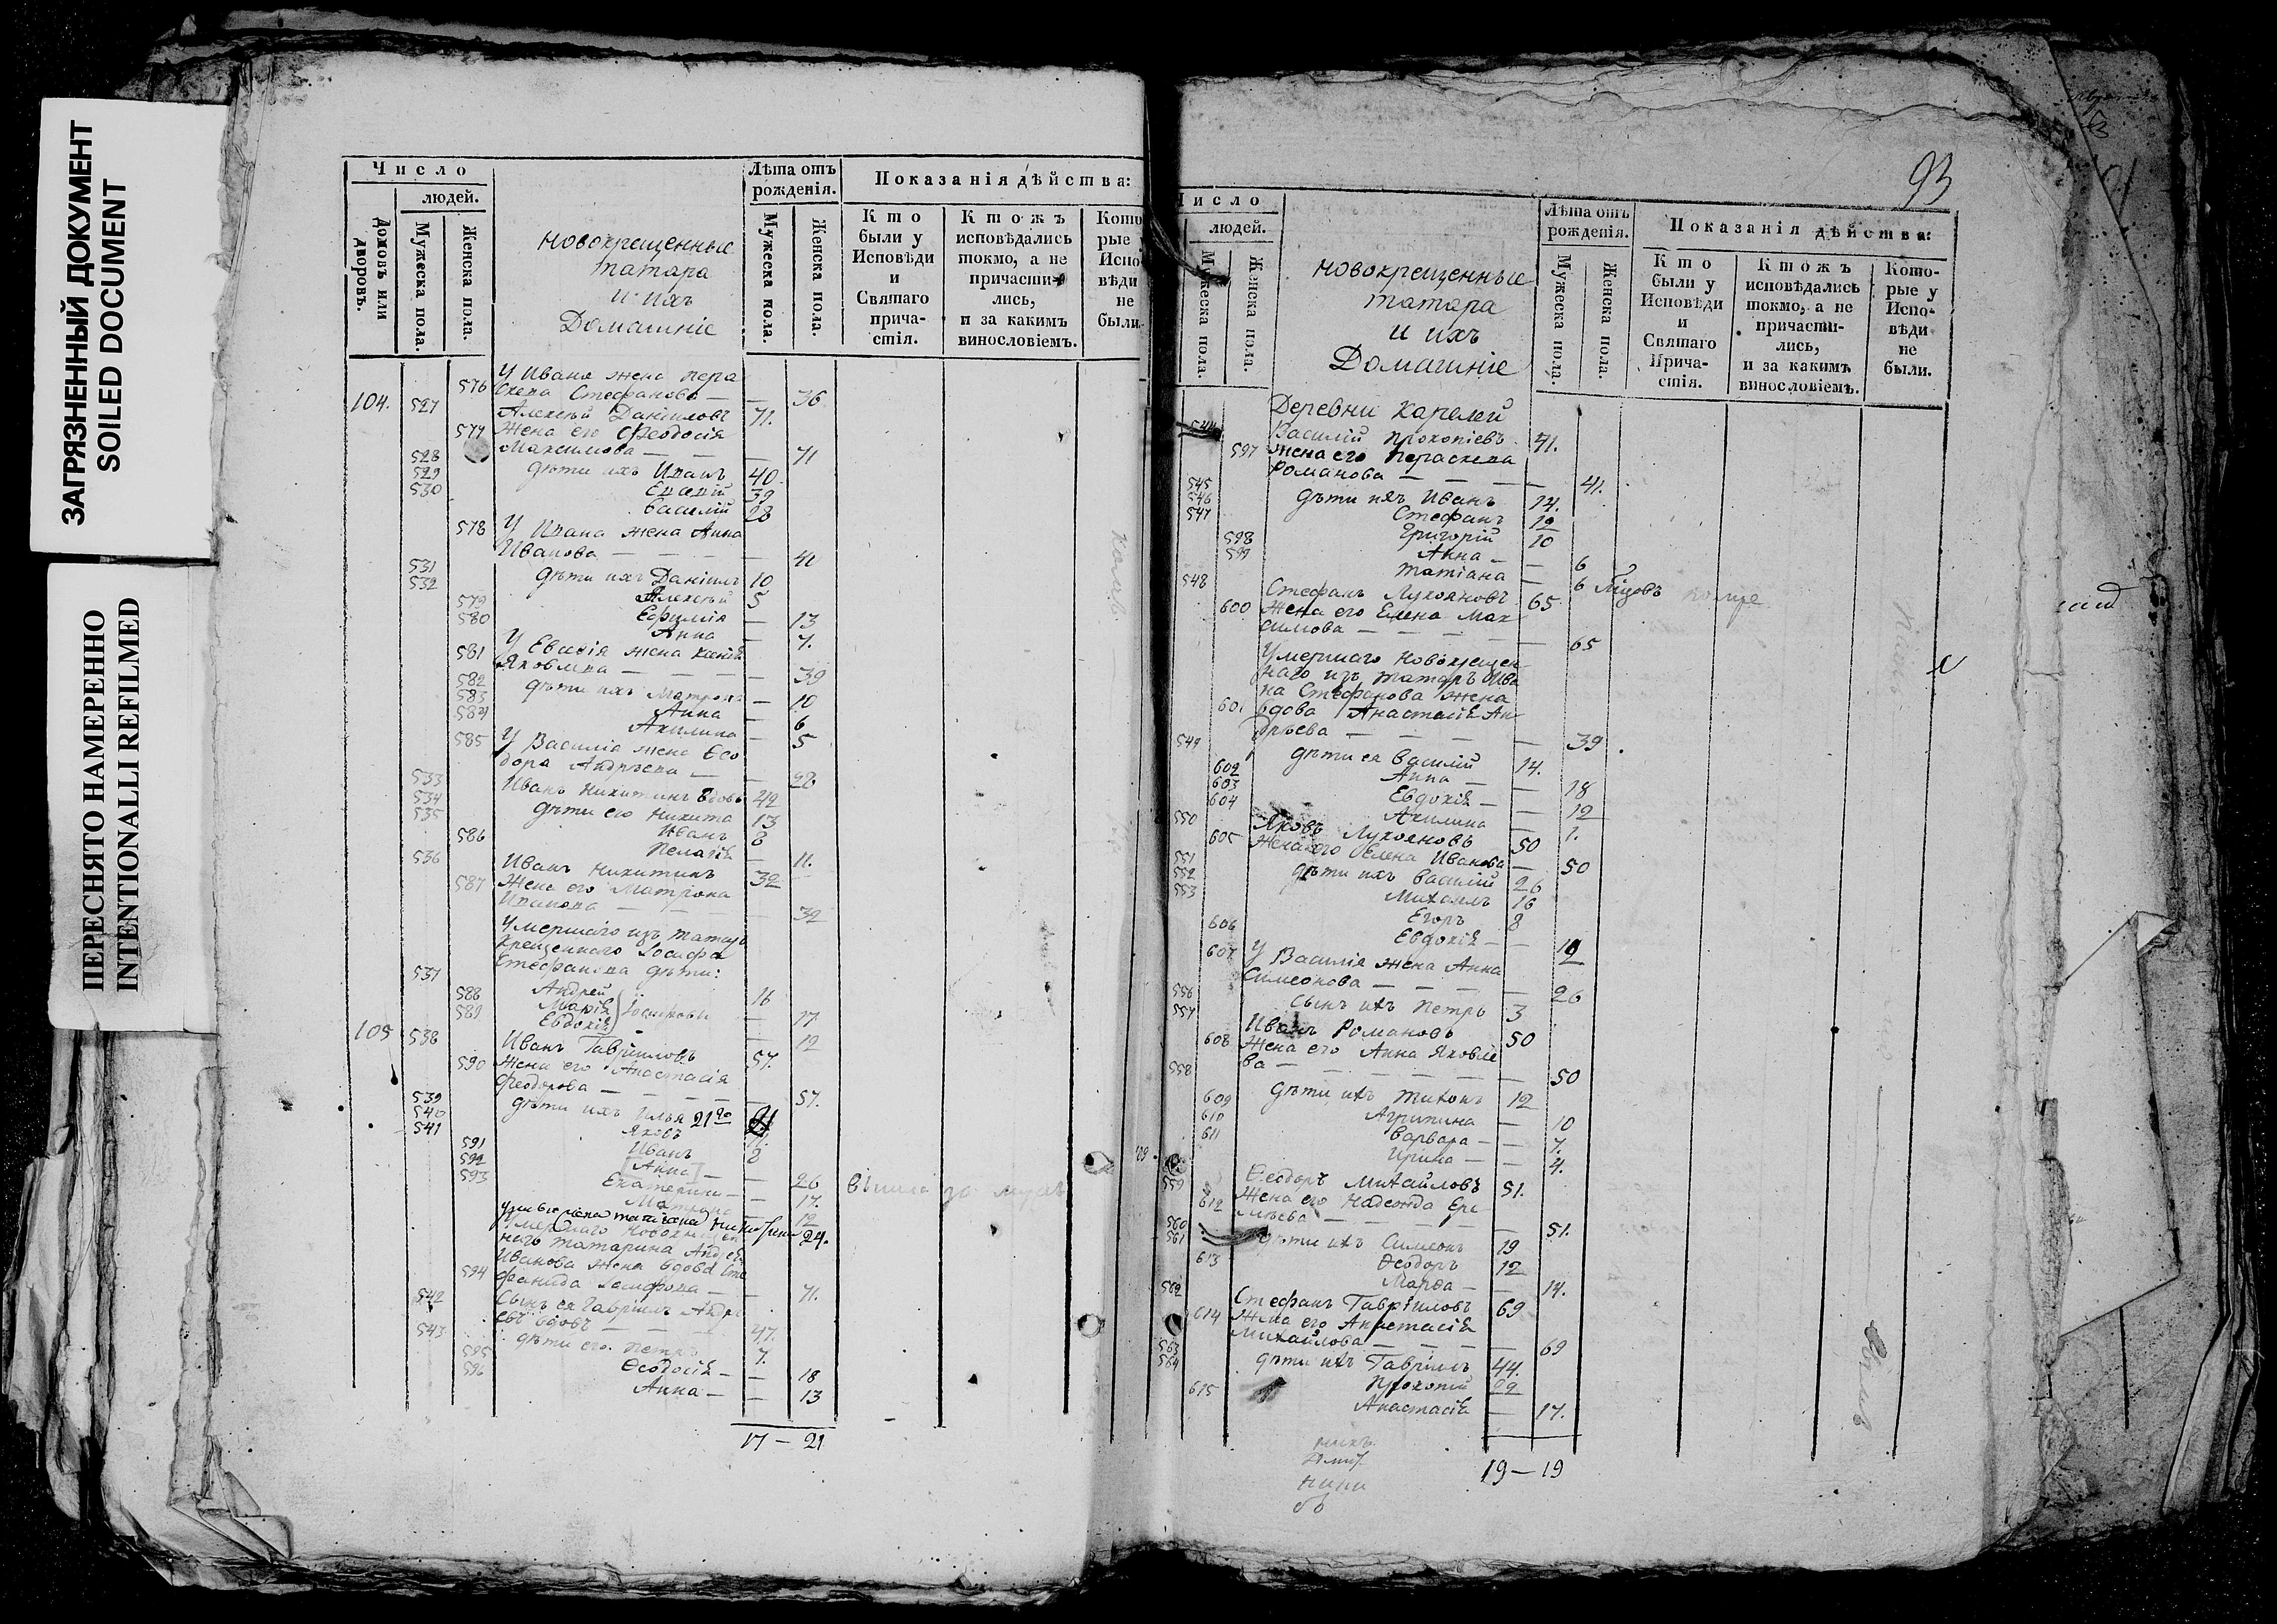 ЗАГРЯЗНЕННЫЙ ДОКУМЕНТ
SOILED DOCUMENT
ПЕРЕСНЯТО НАМЕРЕННО
INTENTIONALLI REFILMED
Число
людей.
Домовъ или дворовъ.
Мужеска пола.
Женска пола.
Новокрещенные
татара
и ихъ
Домашніе
Лѣта отъ рожденія.
Мужеска пола.
Женска пола.
Показанія дѣйства:
Кто были у Исповѣди и Святаго прича-стія.
Ктожъ исповѣдались токмо, а не причасти-лись, и за какимъ винословіемъ.
Кото рые Испо вѣди не были.
576 У Ивана жена пера
скева Стефанова — 36
104. 527 Алексѣй Даніиловъ 71.
577 Жена его Феодосія
Максимова — 71
528 дѣти ихъ Иванъ 40
529 39
530 Василій 28
578 У Ивана жена Анна
Иванова — 41
531 дѣти ихъ Даніилъ 10
532 Алексѣй 5
579 Ефимія — 13
580 Анна — 7.
581 У жена
Яковлева — 39
582 дѣти ихъ Матрона — 10
583 Анна — 6
584 Акилина — 5
585 У Василія жена Ѳео
дора Андреева — 28
533 Иванъ Никитинъ вдовъ 42
534 дѣти его Никита 13
535 Иванъ 8
586 Пелагія — 11.
536 Иванъ Никитинъ 32
587 Жена его Матрона
Иванова — 32
Умершаго изъ татаръ
крещеннаго Іосифа
Стефанова дѣти:
537 Андрей 16
588 Марія — 17
589 Евдокія — 12
105 538 Иванъ Гавриловъ 57.
590 Жена его Анастасія
Феодорова — 57.
539 дѣти ихъ Илья 21
540 Яковъ
541 Иванъ 8
591 Анна — 26
592 Екатерина — 17.
593 — 12
24.
Умершаго
татарина Андрея
Иванова жена вдова Сте
594 фанида — 71.
542 Сынъ ея Гавріилъ Андре
евъ вдовъ — 47.
543 дѣти его Петръ 7.
595 Ѳеодосія — 18
596 Анна — 13
17 — 21
93
Число
людей.
Мужеска пола.
Женска пола.
Новокрещенные
татара
и ихъ
Домашніе
Лѣта отъ рожденія.
Мужеска пола.
Женска пола.
Показанія дѣйства:
Кто были у Исповѣди и Святаго Прича-стія.
Ктожъ исповѣдались токмо, а не причасти-лись, и за какимъ винословіемъ.
Кото-рые у Испо-вѣди не были.
Деревни Карелей
544 Василій Прокопіевъ 41.
597 жена его Параскева
Романова — 41.
545 дѣти ихъ Иванъ 14.
546 Стефанъ 12
547 Григорій 10
598 Анна — 6
599 Татіана — 6
548 Стефанъ Лукояновъ 65
600 Жена его Елена Мак
симова — 65
Умершаго новокрещен
наго изъ татаръ Ива
на Стефанова жена
601 вдова Анастасія Ан
дреева — 39
549 дѣти ея Василій 14.
602 Анна — 18
603 Евдокія — 12
604 Акилина — 1.
550 Яковъ Лукояновъ 50
605 Жена его Елена Иванова — 50
551 дѣти ихъ Василій 26
552 Михаилъ 16
553 Егоръ 8
606 Евдокія —
607 У Василія жена Анна
Симеонова — 26
556 Сынъ ихъ Петръ 3
557 Иванъ Романовъ 50
608 Жена его Анна Яковле
ва — 50
558 дѣти ихъ Тихонъ 12
609 Агрипина — 10
610 Варвара — 7.
611 Ирина — 4.
559 Ѳеодоръ Михайловъ 51.
612 Жена его Надежда Ере
мѣева — 51.
560 дѣти ихъ Симеонъ 19
561 Ѳеодоръ 12
613 Марѳа — 14.
562 Стефанъ Гавриловъ 69
614 Жена его Анастасія
Михайлова — 69
563 дѣти ихъ Гавріилъ 44.
564 Прокопій 22
615 Анастасія — 17.
19 — 19